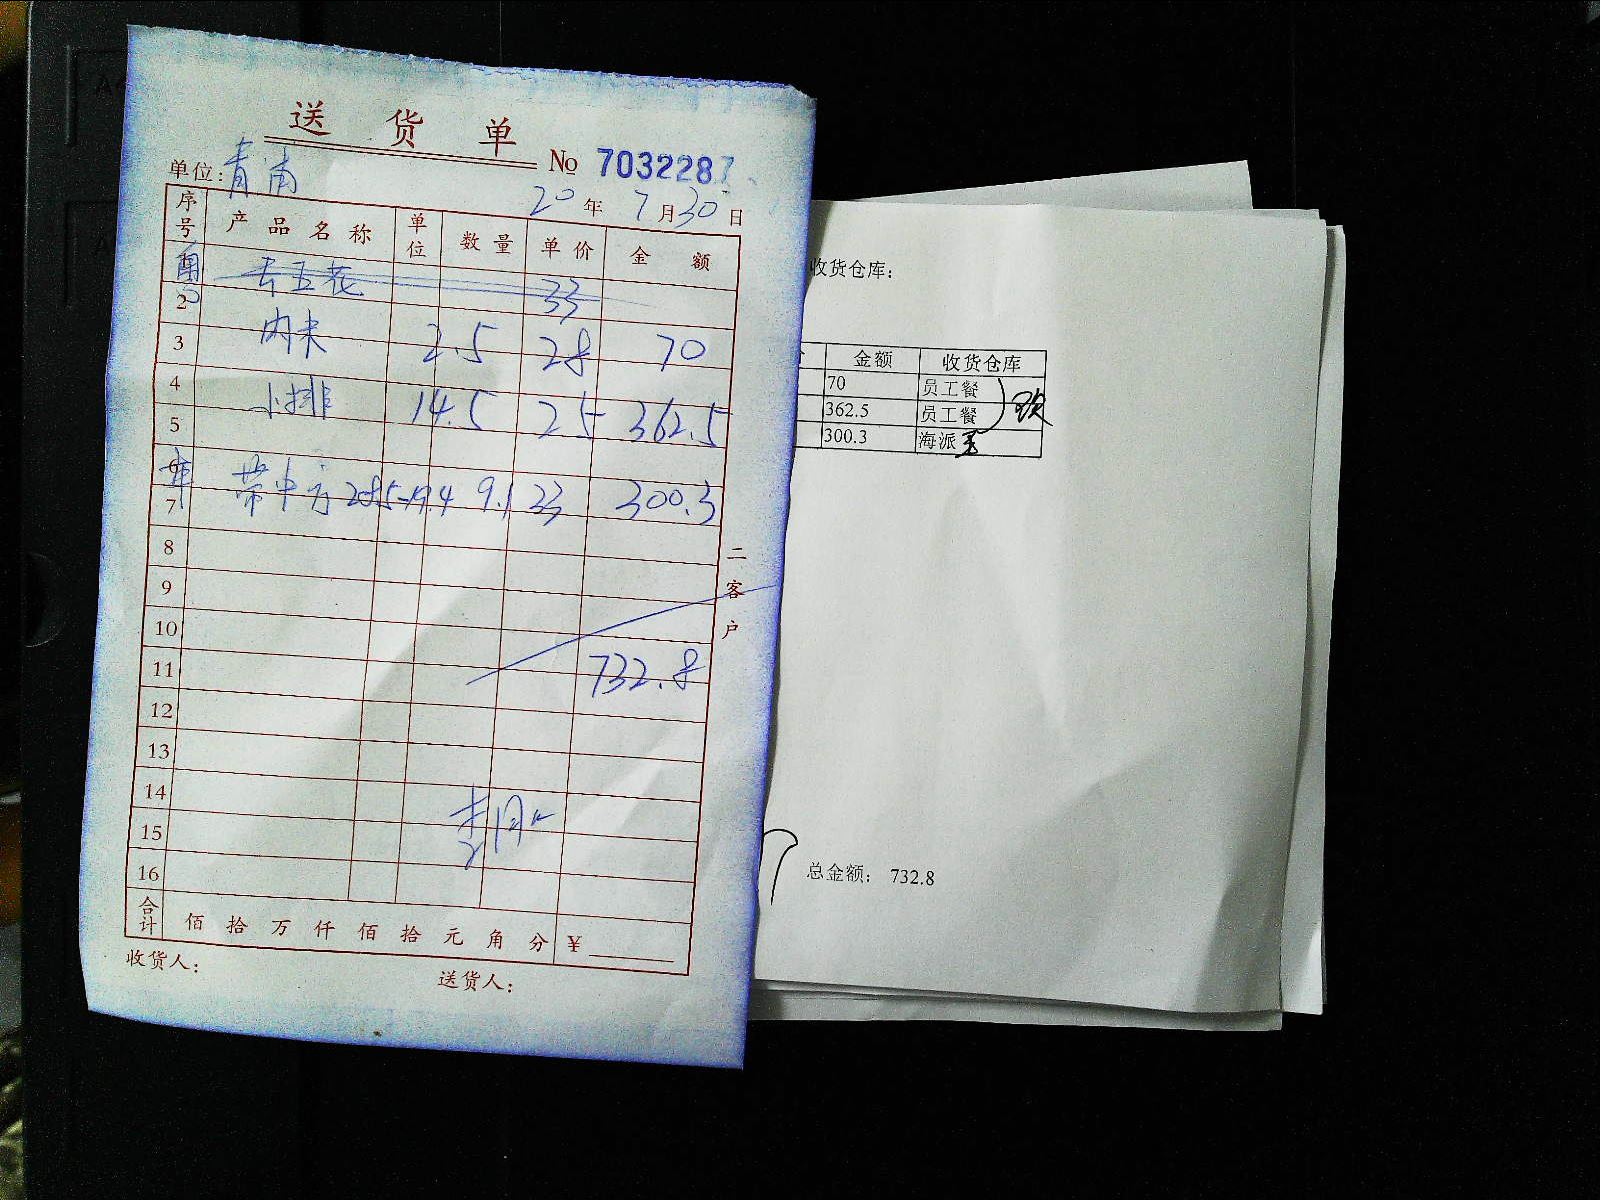 送货单
No 7032287
单位:青浦
20年7月30日
序号 产品名称 单位 数量 单价 金额
去五花 33
2
3 肉末 2.5 28 70
4
小排 14.5 25 362.5
5
6
7 带中方 28.5-19.4 9.1 33 300.3
8
9
10
11 732.8
12
13
14
15
16
合计 佰拾万仟佰拾元角分 ¥
收货人:
送货人:
二客户
收货仓库:
金额 收货仓库
70 员工餐
362.5 员工餐
300.3 海派
总金额: 732.8